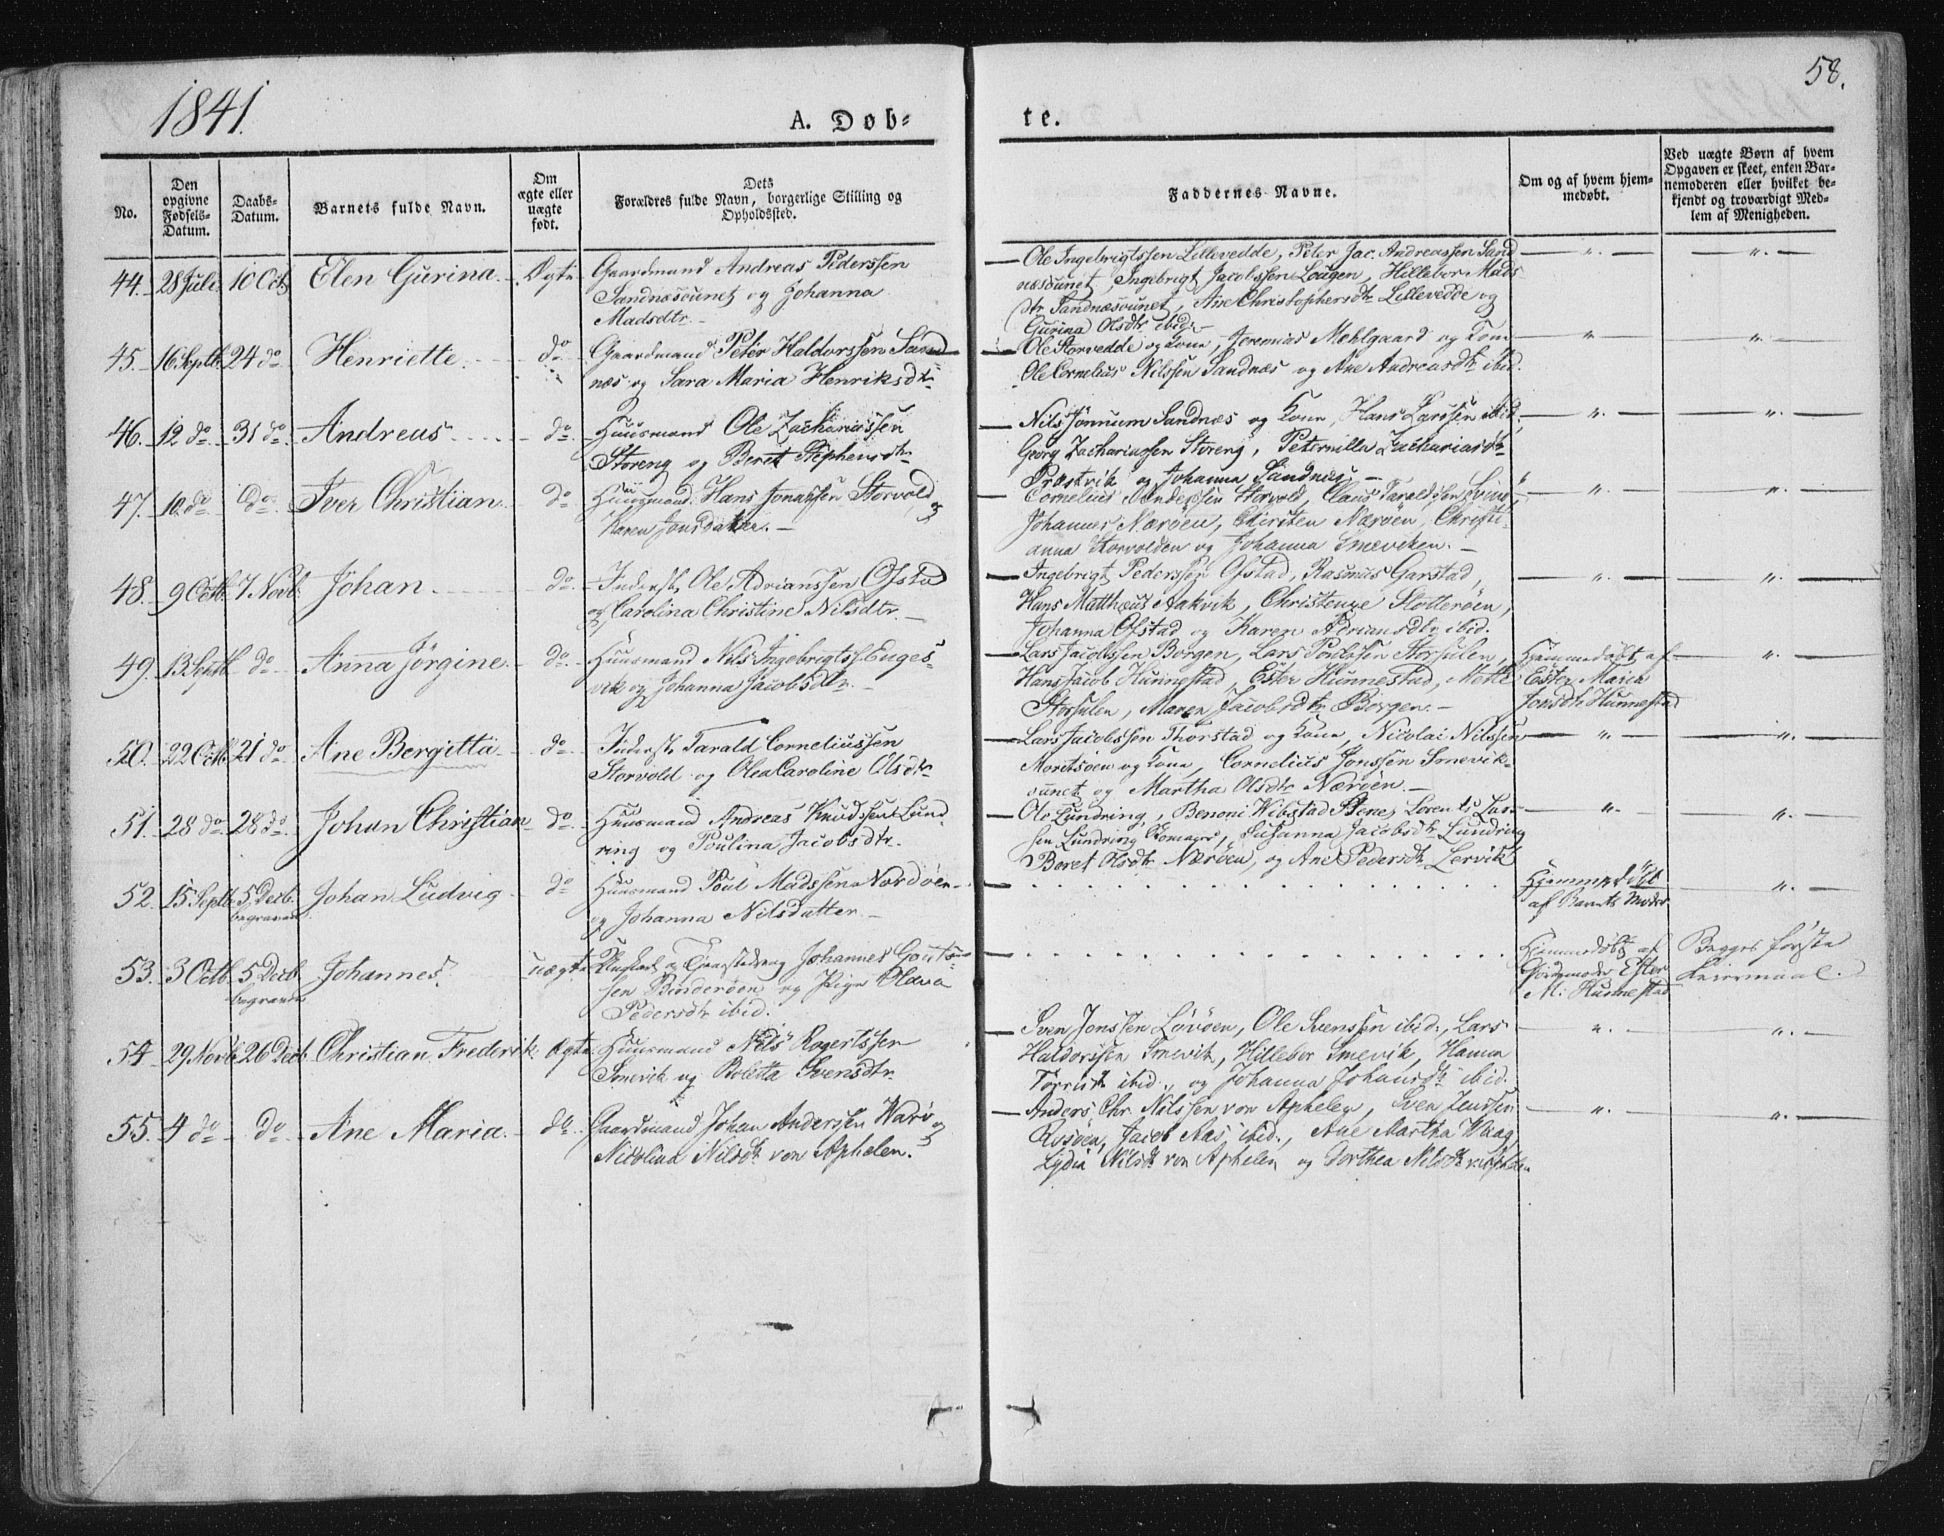 1841.
A. Døb-
te.
58.
No.
Den opgivne Fødsels-Datum.
Daabs-Datum.
Barnets fulde Navn.
Om ægte eller uægte født.
Dets
Forældres fulde Navn, borgerlige Stilling og
Opholdsted.
Faddernes Navne.
Om og af hvem hjem-
medøbt.
Ved uægte Børn af hvem
Opgaven er skeet, enten Bar-
nemoderen eller hvilket be-
kjendt og troværdigt Med-
lem af Menigheden.
44. 28 Juli 10 Oct. Elen Gurina. Ægte Gaardmand Andreas Pederssen
Sandnæsounet og Johanna
Madsdtr.
Ole Ingebrigtssen Lillevedde, Peter Jac. Andreassen Sand
næsounet, Ingebrigt Jacobssen Lougen, Hillebor Mads
dtr Sandnæsounet, Ane Christophersdtr Lillevedde og
Gurina Olsdtr ibid.
45. 16 Septb. 24 do Henriette. do Gaardmand Peter Haldorssen Sand
næs og Sara Maria Henriksdtr
Ole Storvedde og Kone, Jeremias Mæhlgaard og Kone
Ole Cornelius Nilssen Sandnæs og Ane Andreasdtr ibid.
46. 12 do 31 do Andreas do Huusmand Ole Zachariassen
Storeng og Beret Stephensdtr
Nils Jönnum Sandnæs og Kone, Hans Larssen ibid,
Georg Zachariassen Storeng, Peternilla Zachariasdtr
Præstvik og Johanna Sandnæs.
47. 10 do do Iver Christian do Huusmand Hans Jonassen Storvold og
Karen Jonsdatter.
Cornelius Anderssen Storvold, Claus Taraldssen
Johannes Nærøen, Chirsten Nærøen, Christi-
anna Storvolden og Johanna Smeviken.
48. 9 Octb. 7 Novb. Johan do Inderst Ole Adrianssen Ofstad
og Carolina Christine Nilsdtr.
Ingebrigt Pederssen Ofstad, Rasmus Garstad,
Hans Matthæus Aakvik, Christenze Flotterøen,
Johanna Ofstad og Karen Adriansdtr ibid.
49. 13 Septb do Anna Jörgine. do Huusmand Nils Ingebrigtss. Enges-
vik og Johanna Jacobsdtr.
Lars Jacobssen Borgen, Lars Poulssen Storsulen,
Hans Jacob Hunnestad, Ester Hunnestad, Mette
Storsulen, Maren Jacobsdtr Borgen.
Hjemmedøbt af
Ester Maria
Jonsdtr Hunnestad
50. 22 Octb. 21 do Ane Bergitta do Inderst Tarald Corneliussen
Storvold og Olea Caroline Olsdtr
Lars Jacobssen Thorstad og Kone, Nicolai Nilssen
Moretsöen og Kone, Cornelius Jonssen Smevik-
ounet og Martha Olsdtr Nærøen.
51. 28 do 28 do Johan Christian do Huusmand Andreas Knudssen Lund-
ring og Poulina Jacobsdtr.
Ole Lundring, Benoni Wibstad Stene, Lorents Lars-
sen Lundring Susanna Jacobsdtr Lundring
Beret Olsdtr Nærøen, og Ane Pedersdtr Lervik
52. 15 Septb 5 Decb. begraven Johan Ludvig do Huusmand Poul Madssen Nordøen
og Johanna Nilsdatter.
Hjemmedøbt
af Barnets Moder.
53. 3 Octb. 5 Decb. begraven Johannes. uægte Ungkarl og Johannes
sen Binderøen og Pige Olava
Pedersdtr ibid.
Hjemmedøbt af
Gjordemoder Ester
M. Hunnestad
Begges første
Leiermaal.
54. 29 Novb. 26 Decb. Christian Frederik. Ægte Huusmand Nils Rogertssen
Smevik og Boletta Svensdtr.
Sven Jonssen Løvøen, Ole Svenssen ibid., Lars
Haldorssen Smevik, Hillebor Smevik, Hanna
Torrisdtr ibid., og Johanna Johansdtr ibid.
55. 4 do do Ane Maria. do Gaardmand Johan Anderssen Warø og
Nicolina Nilsdtr von Aphelen.
Anders Chr. Nilssen von Aphelen, Sven Jenssen
Rosøen, Jacob Aas ibid., Ane Martha Waag
Lydia Nilsdtr von Aphelen og Dorthea Nilsdtr v. Aphelen